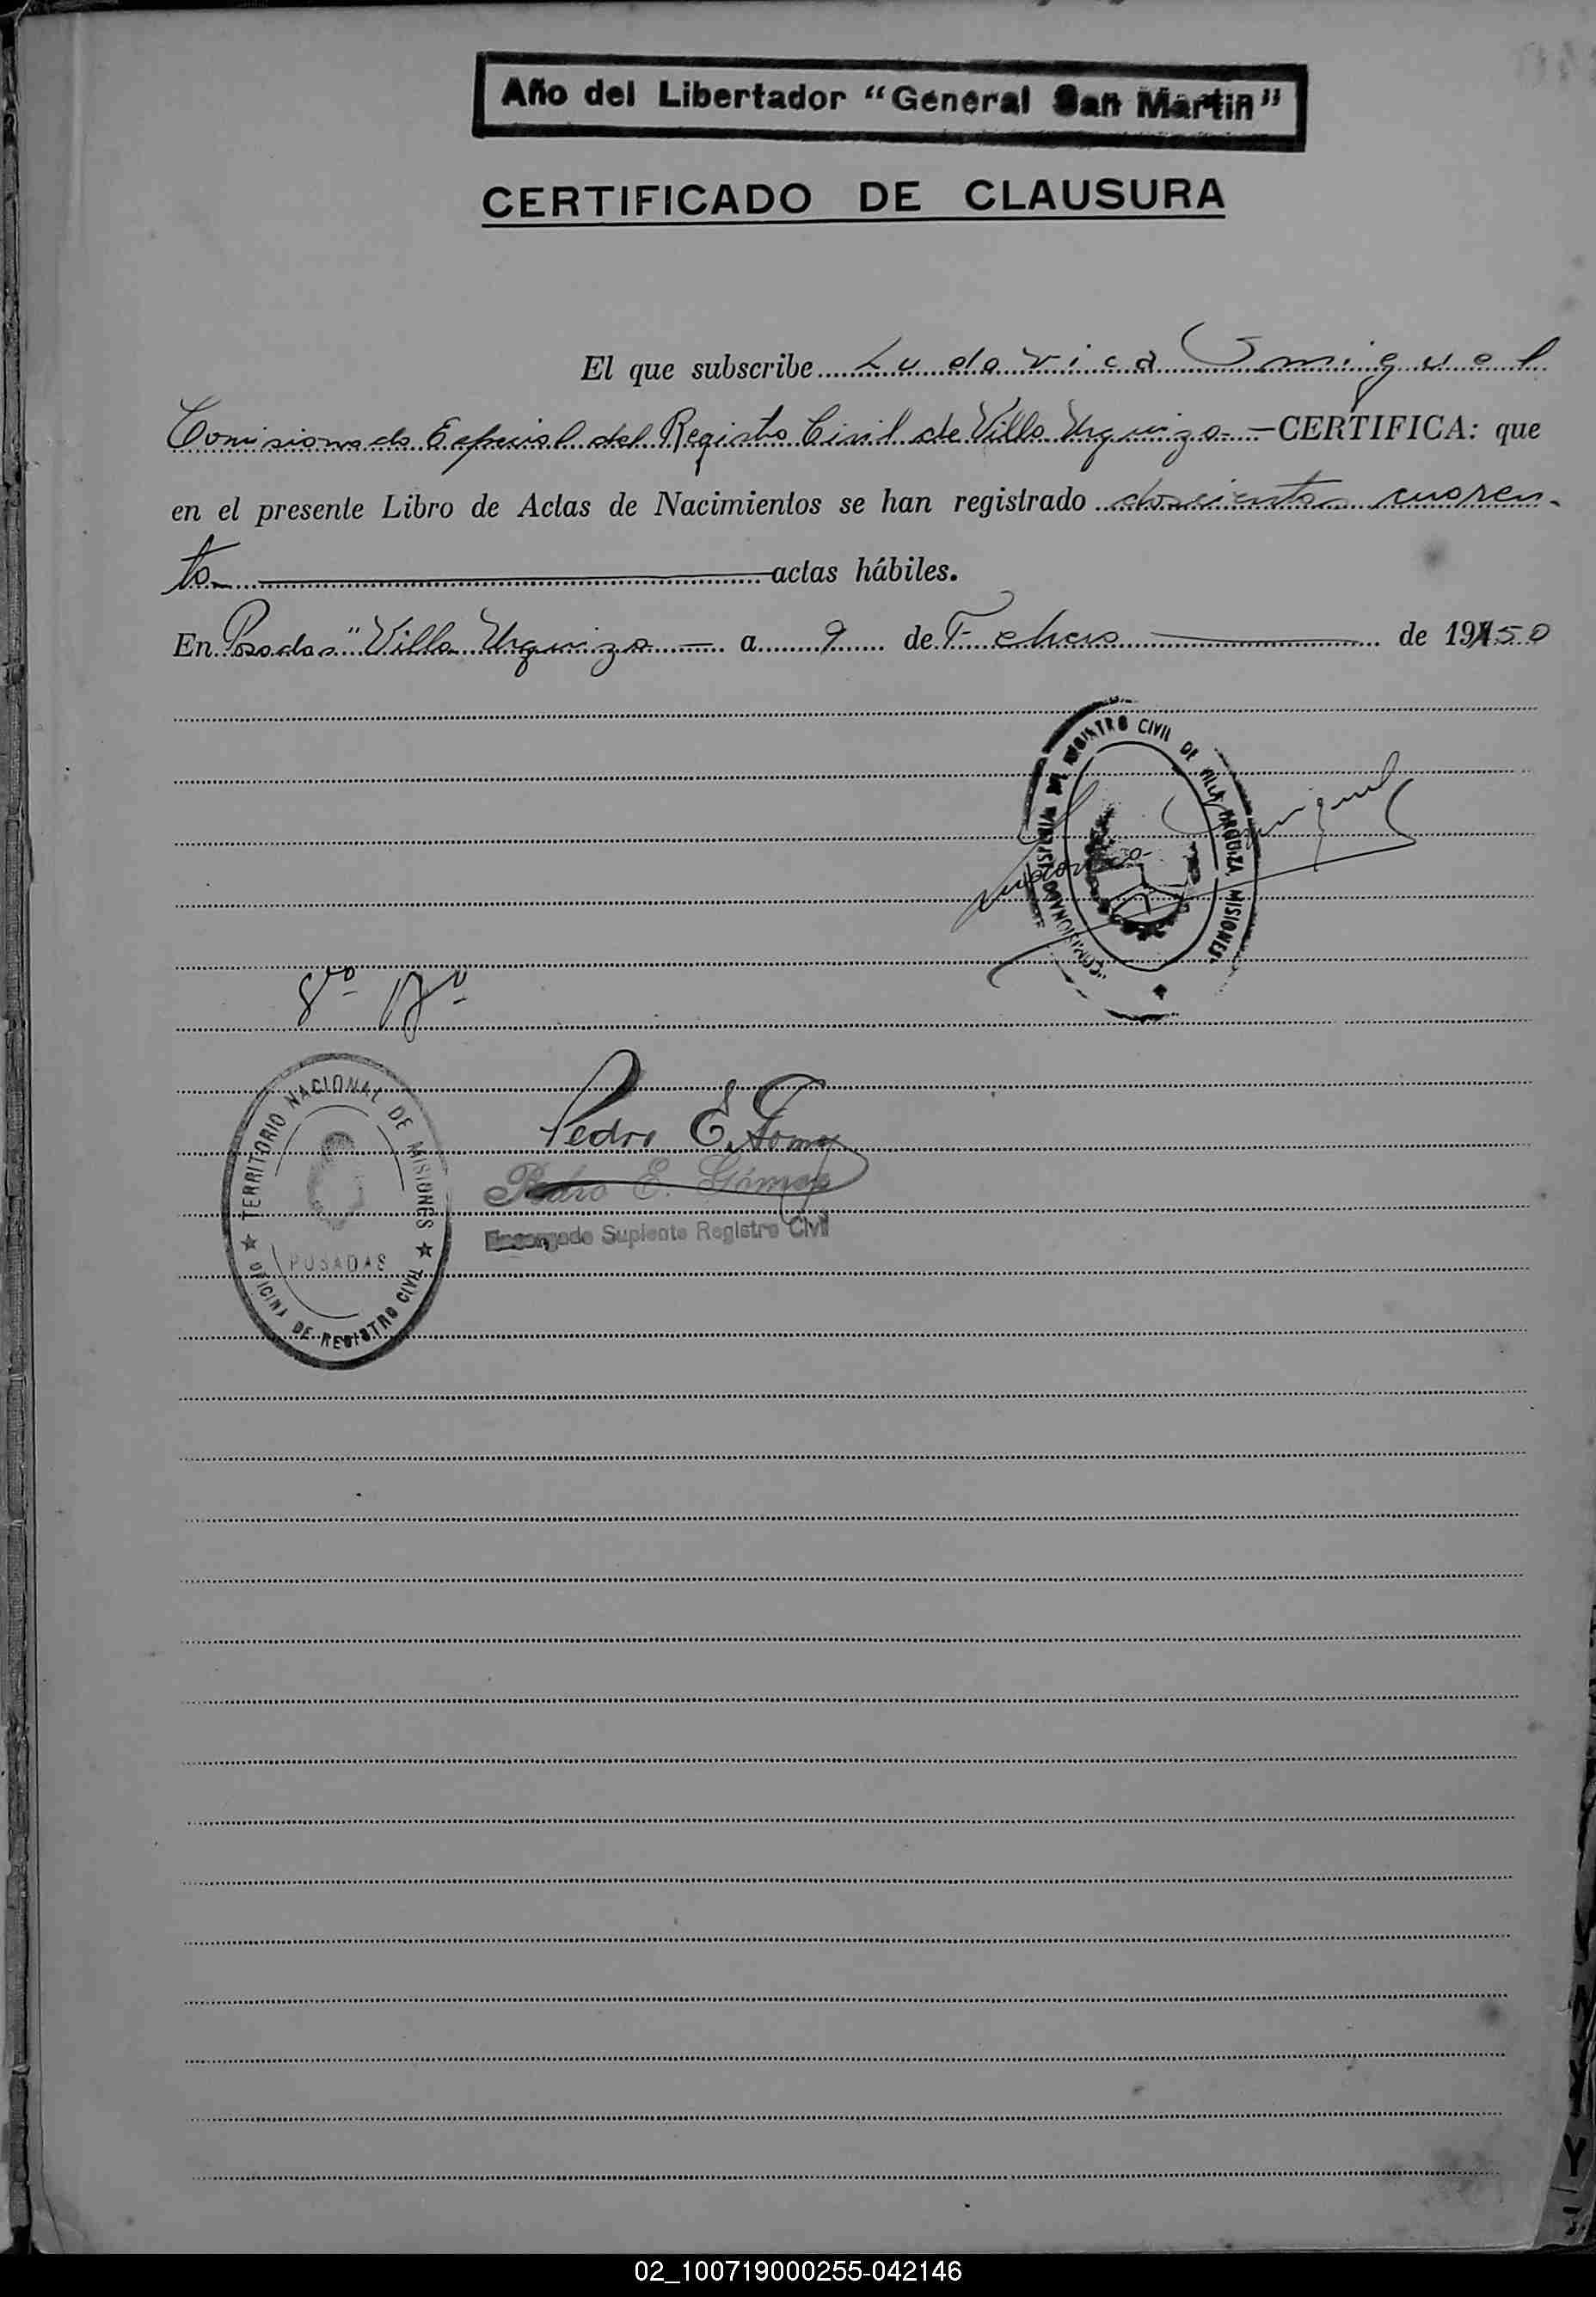 Año del Libertador “General San Martin”
CERTIFICADO DE CLAUSURA
El que subscribe Ludovica Smiguel
Comisionado Especial del Registro Civil de Villa Urquiza — CERTIFICA: que
en el presente Libro de Actas de Nacimientos se han registrado doscientos cuaren-
ta actas hábiles.
En Posadas "Villa Urquiza — a 9 de Febrero de 1950
REGISTRO CIVIL DE VILLA URQUIZA MISIONES
Ludovica Smiguel
Vº Bº
TERRITORIO NACIONAL DE MISIONES
POSADAS
OFICINA DE REGISTRO CIVIL
Pedro E. Gomez
Pedro E. Gómez
Encargado Suplente Registro Civil
02_100719000255-042146